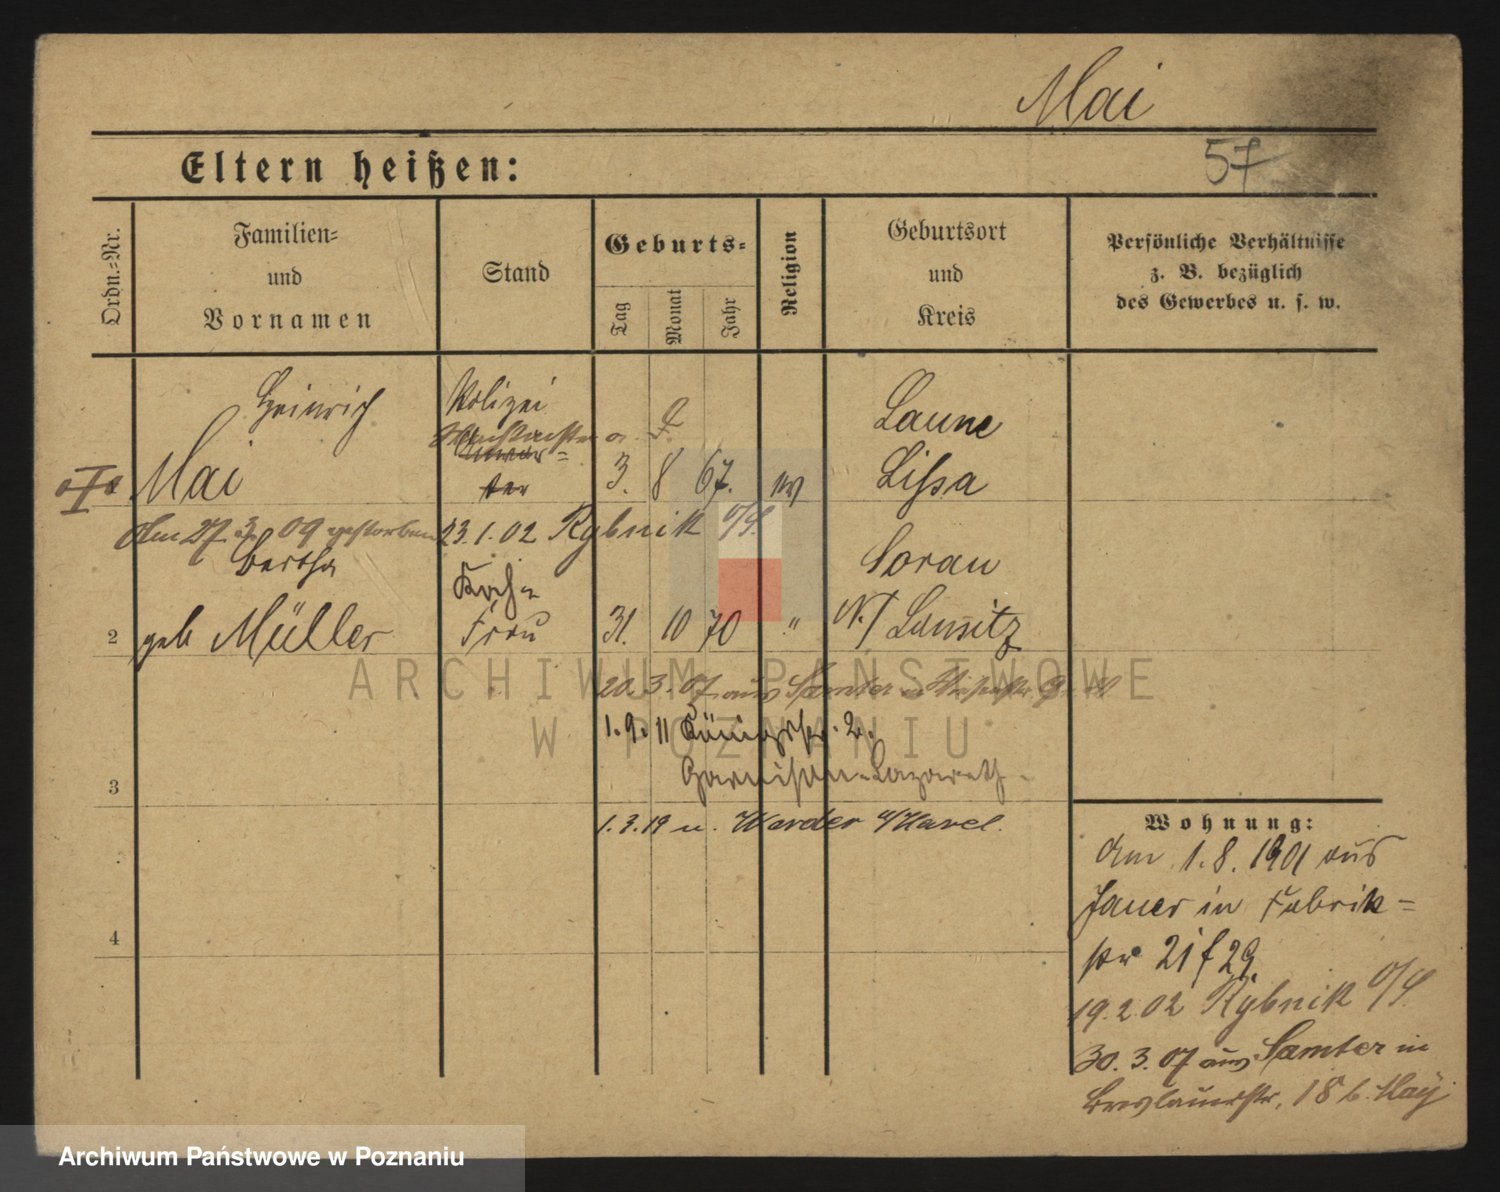 Mai
57
Eltern heißen:
Ordn.-Nr.
Familien-
und
Vornamen
Stand
Geburts-
Tag
Monat
Jahr
Religion
Geburtsort
und
Kreis
Persönliche Verhältnisse
z. B. bezüglich
des Gewerbes u. s. w.
Heinrich
Mai
Polizei
Anwär-
ter
3. 8 67.
ev
Laune
Lissa
Am 27. 3. 09 gestorben
23.1.02 Rybnik O/S.
2
Bertha
geb Müller
Koch-
Frau
31. 10 70
"
Sorau
N./ Lausitz
20. 3. 07 aus Samter in
1.9.11 Königstr. 2.
Garnison-Lazareth.
3
1.3.19 n. Werder a/Havel.
4
Wohnung:
Am 1.8.1901 aus
Jauer in Fabrik=
str 21 f 29
19.2.02 Rybnik O/S.
30. 3. 07 aus Samter in
Breslauerstr. 18 b. May
ARCHIWUM PAŃSTWOWE
W POZNANIU
Archiwum Państwowe w Poznaniu